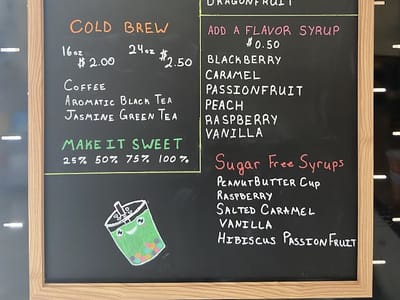 DRAGONFRUIT
COLD BREW
16oz 24oz
$2.00 $2.50
COFFEE
AROMATIC BLACK TEA
JASMINE GREEN TEA
MAKE IT SWEET
25% 50% 75% 100%
ADD A FLAVOR SYRUP
$0.50
BLACKBERRY
CARAMEL
PASSIONFRUIT
PEACH
RASPBERRY
VANILLA
Sugar Free Syrups
PEANUTBUTTER CUP
RASPBERRY
SALTED CARAMEL
VANILLA
HIBISCUS PASSIONFRUIT